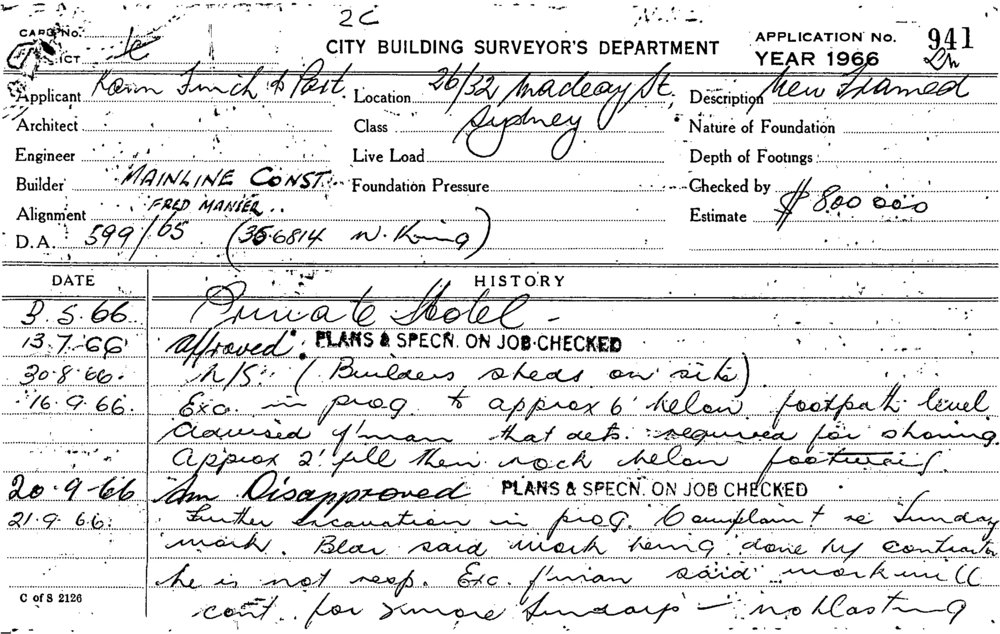 2C
CARD No.
CITY BUILDING SURVEYOR'S DEPARTMENT
APPLICATION No. 941
YEAR 1966
Applicant Kann Finch & Part. Location 26/32 Macleay St. Description New Framed
Architect Class Sydney Nature of Foundation
Engineer Live Load Depth of Footings
Builder MAINLINE CONST. Foundation Pressure Checked by
Alignment FRED MANSER Estimate $ 800 000
D.A. 599/65 (35-6814 W. King)
DATE HISTORY
3.5.66 Private Hotel -
13.7.66 Approved. PLANS & SPECN. ON JOB CHECKED
30.8.66. N/S. (Builders sheds on site)
16.9.66. Exc. in prog to approx 6' below footpath level
Advised f'man that dets. required for shoring.
Approx 2' fill then rock below
20.9.66 Am Disapproved PLANS & SPECN. ON JOB CHECKED
21.9.66. Further excavation in prog. Complaint re Sunday
work. Bldr said work being done by contractor
he is not resp. Exc. f'man said work will
cont. for 2 more Sundays - no blasting
C of S 2126